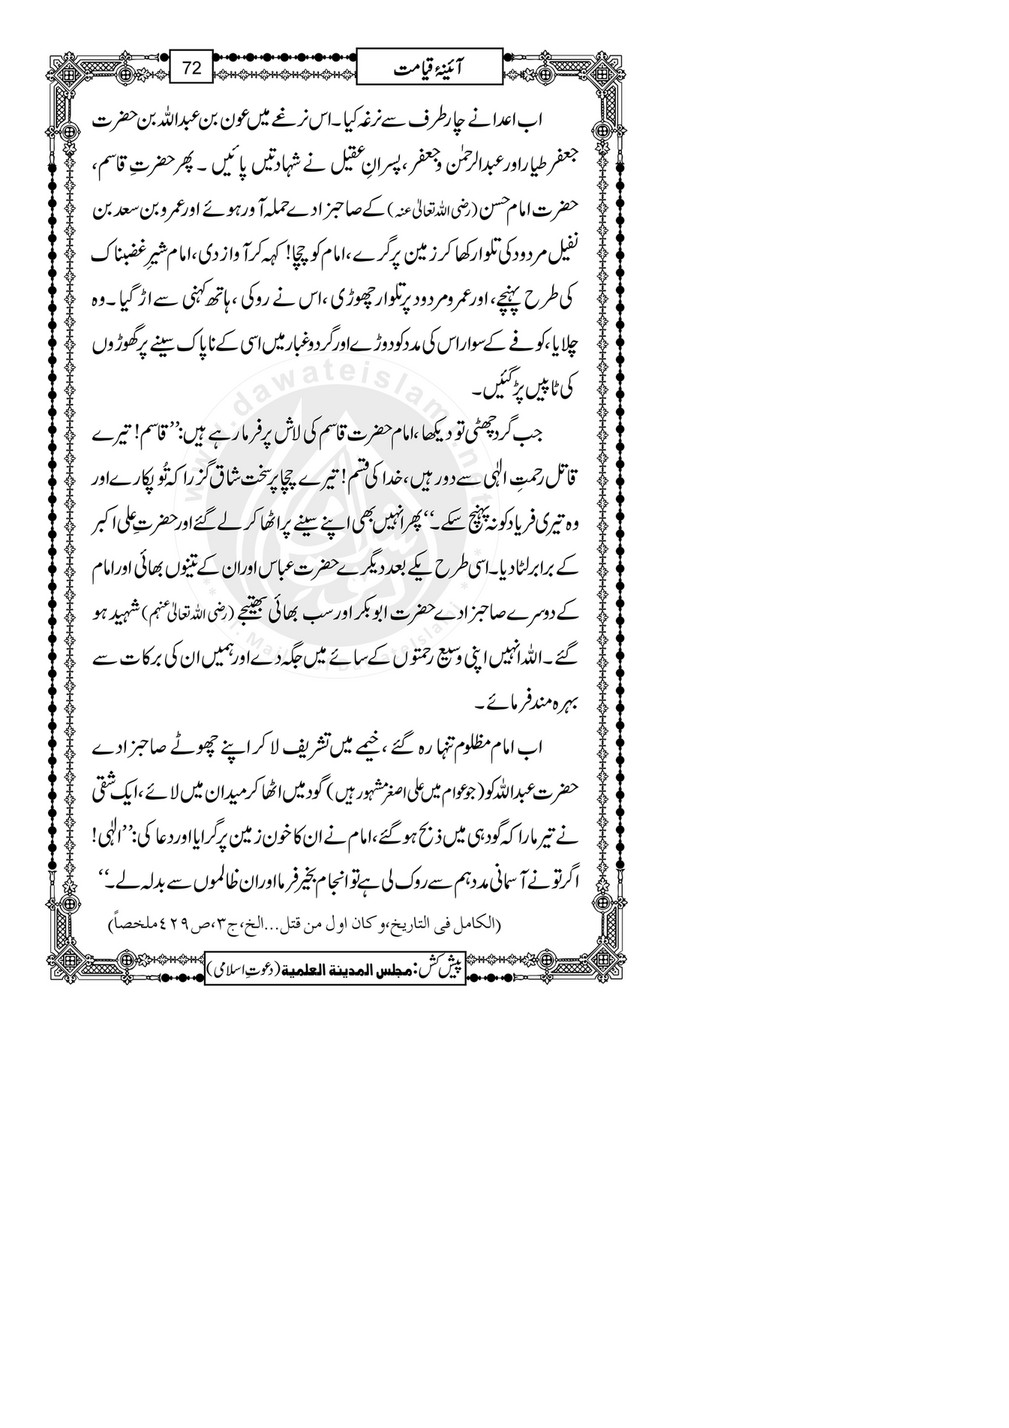 آئینۂ قیامت
72
اب اعدا نے چار طرف سے نرغہ کیا۔ اس نرغے میں عون بن عبداللہ بن حضرت
جعفر طیار اور عبدالرحمٰن وجعفر، پسرانِ عقیل نے شہادتیں پائیں ۔ پھر حضرتِ قاسم،
حضرت امام حسن (رضی اللہ تعالیٰ عنہ) کے صاحبزادے حملہ آور ہوئے اور عمرو بن سعد بن
نفیل مردود کی تلوار کھا کر زمین پر گرے، امام کو چچا! کہہ کر آواز دی، امام شیرِ غضبناک
کی طرح پہنچے، اور عمرو مردود پر تلوار چھوڑی، اس نے روکی، ہاتھ کہنی سے اڑ گیا ۔ وہ
چلایا، کوفے کے سوار اس کی مدد کو دوڑے اور گردوغبار میں اسی کے ناپاک سینے پر گھوڑوں
کی ٹاپیں پڑ گئیں۔
جب گرد چھٹی تو دیکھا، امام حضرت قاسم کی لاش پر فرمارہے ہیں:’’ قاسم! تیرے
قاتل رحمتِ الٰہی سے دور ہیں، خدا کی قسم! تیرے چچا پر سخت شاق گزرا کہ تُو پکارے اور
وہ تیری فریاد کو نہ پہنچ سکے۔‘‘ پھر انہیں بھی اپنے سینے پر اٹھا کر لے گئے اور حضرتِ علی اکبر
کے برابر لٹا دیا۔ اسی طرح یکے بعد دیگرے حضرت عباس اور ان کے تینوں بھائی اور امام
کے دوسرے صاحبزادے حضرت ابوبکر اور سب بھائی بھتیجے (رضی اللہ تعالیٰ عنہم) شہید ہو
گئے۔ اللہ انہیں اپنی وسیع رحمتوں کے سائے میں جگہ دے اور ہمیں ان کی برکات سے
بہرہ مند فرمائے ۔
اب امام مظلوم تنہا رہ گئے ، خیمے میں تشریف لا کر اپنے چھوٹے صاحبزادے
حضرت عبداللہ کو (جو عوام میں علی اصغر مشہور ہیں) گود میں اٹھا کر میدان میں لائے، ایک شقی
نے تیر مارا کہ گود ہی میں ذبح ہو گئے، امام نے ان کا خون زمین پر گرایا اور دعا کی:’’الٰہی!
اگر تو نے آسمانی مدد ہم سے روک لی ہے تو انجام بخیر فرما اور ان ظالموں سے بدلہ لے۔‘‘
(الکامل فی التاریخ، و کان اول من قتل...الخ، ج۳، ص۴۲۹ ملخصاً)
پیش کش: مجلس المدینة العلمیة (دعوتِ اسلامی)
www.dawateislami.net